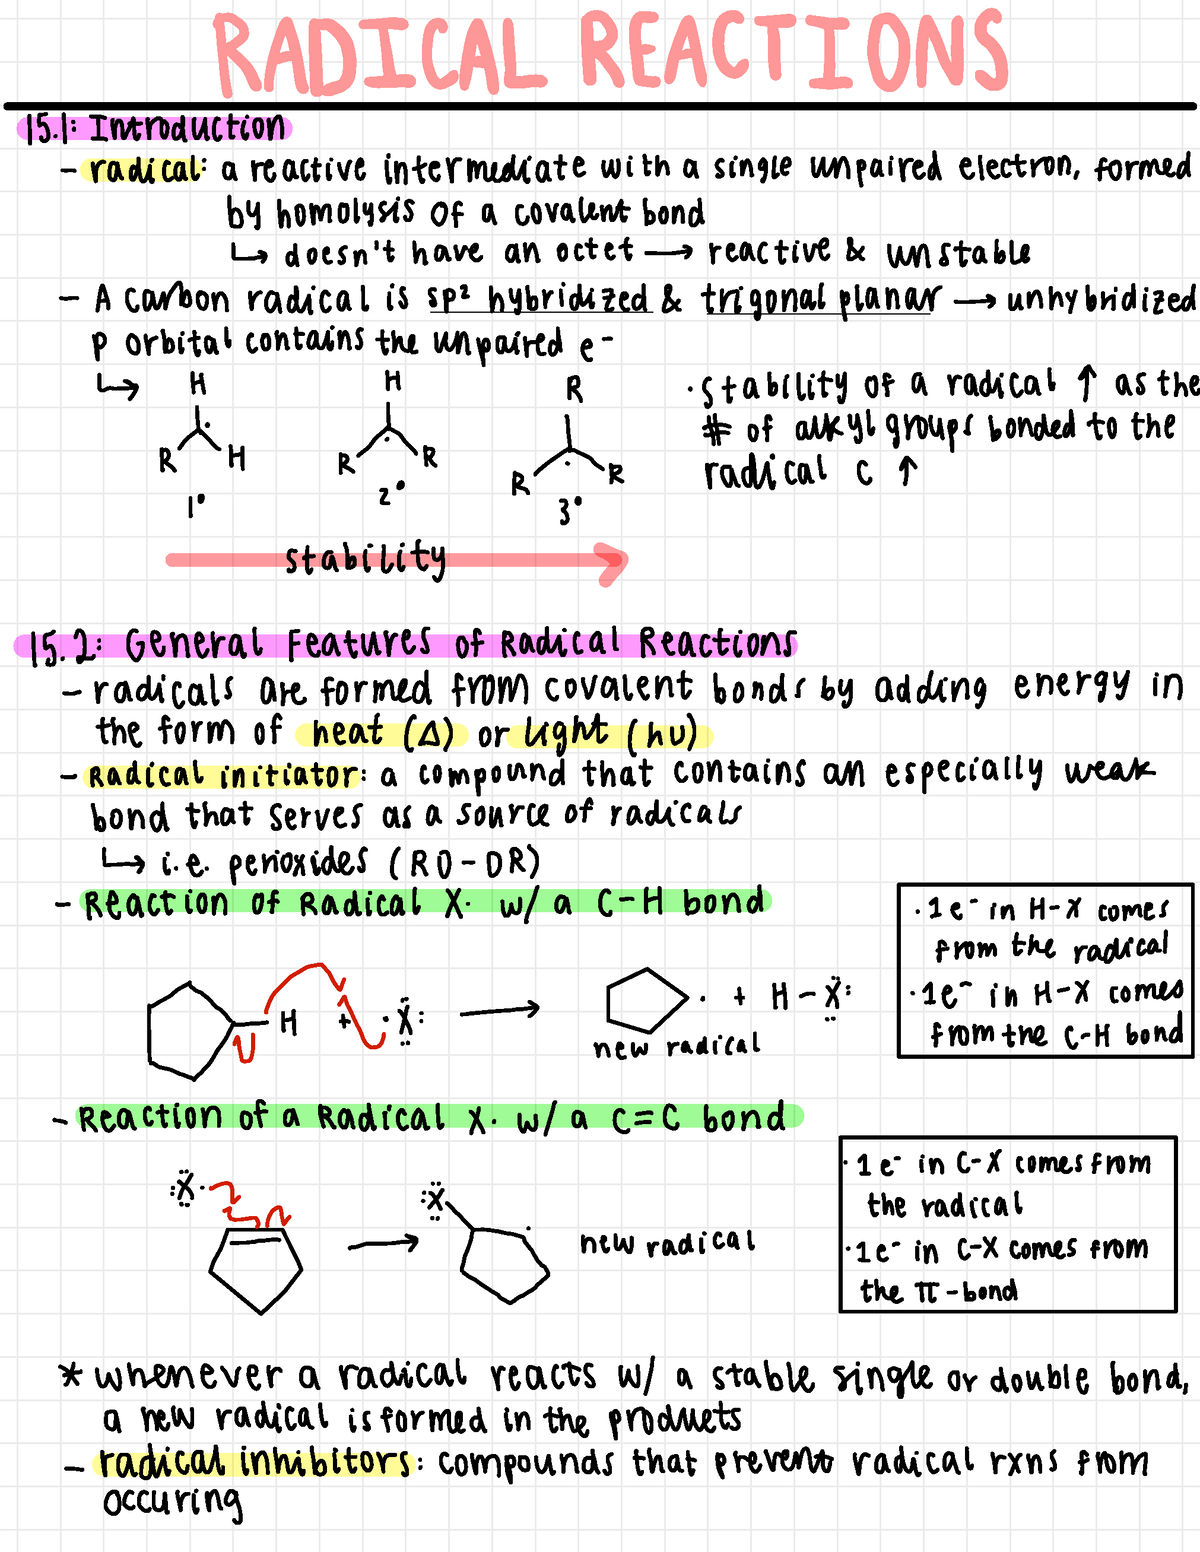 RADICAL REACTIONS
15.1: Introduction
- radical: a reactive intermediate with a single unpaired electron, formed
by homolysis of a covalent bond
↳ doesn't have an octet → reactive & unstable
- A carbon radical is sp² hybridized & trigonal planar → unhybridized
p orbital contains the unpaired e-
↳ H H R
R H R R R R
1° 2° 3°
· stability of a radical ↑ as the
# of alkyl groups bonded to the
radical C ↑
stability
15.2: General Features of Radical Reactions
- radicals are formed from covalent bonds by adding energy in
the form of heat (Δ) or light (hυ)
- Radical initiator: a compound that contains an especially weak
bond that serves as a source of radicals
↳ i.e. perioxides (RO-OR)
- Reaction of Radical X· w/ a C-H bond
H + ·X: → · + H-X:
new radical
· 1e- in H-X comes
from the radical
· 1e- in H-X comes
from the C-H bond
- Reaction of a Radical X· w/ a C=C bond
:X· → :X
new radical
· 1e- in C-X comes from
the radical
· 1e- in C-X comes from
the π-bond
* whenever a radical reacts w/ a stable single or double bond,
a new radical is formed in the products
- radical inhibitors: compounds that prevent radical rxns from
occuring